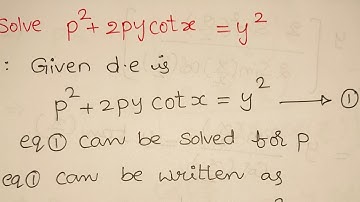 Solve p²+2py cotx = y²
: Given d.e is
p²+2py cotx = y² → ①
eq① can be solved for p
eq① can be written as